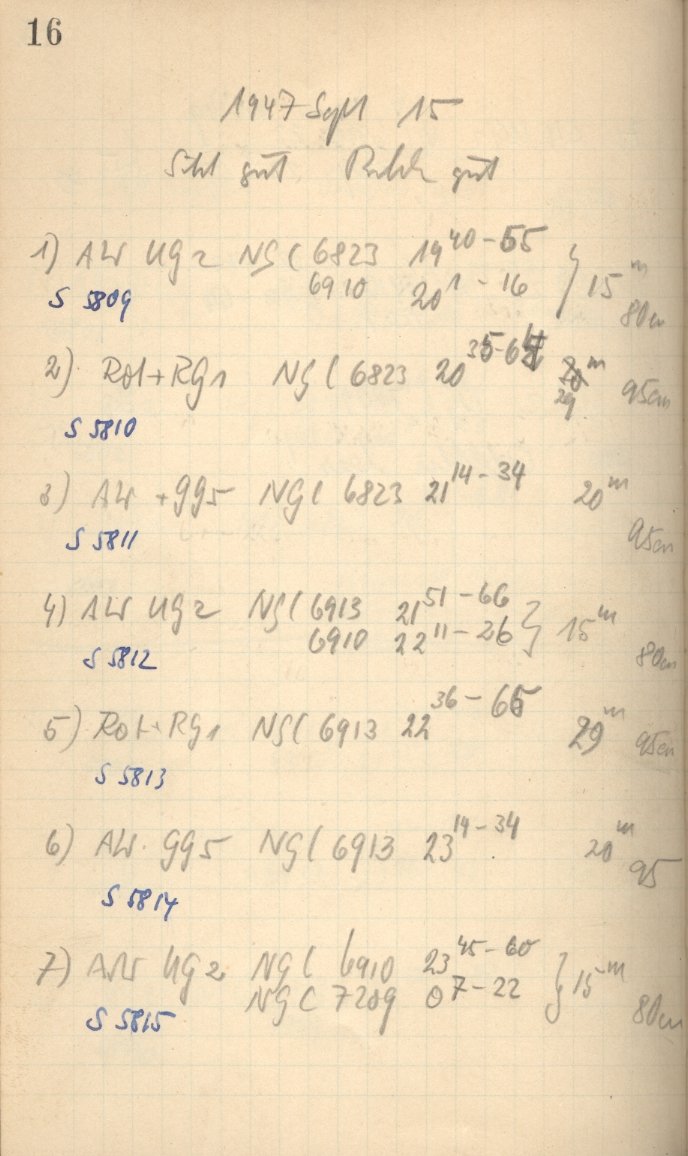 16
1947 Sept 15
Scht gut Bilder gut
1) AW UG2 NGC 6823 19 40-55
6910 20 1-16 } 15 m
S 5809 80cm
2) Rot+RG1 NGC 6823 20 35-64 29 m 95cm
S 5810
3) AW +GG5 NGC 6823 21 14-34 20 m
S 5811 95cm
4) AW UG2 NGC 6913 21 51-66
6910 22 11-26 } 15 m
S 5812 80cm
5) Rot+RG1 NGC 6913 22 36-65 29 m 95cm
S 5813
6) AW. GG5 NGC 6913 23 14-34 20 m 95
S 5814
7) AW UG2 NGC 6910 23 45-60
NGC 7209 0 7-22 } 15 m
S 5815 80cm